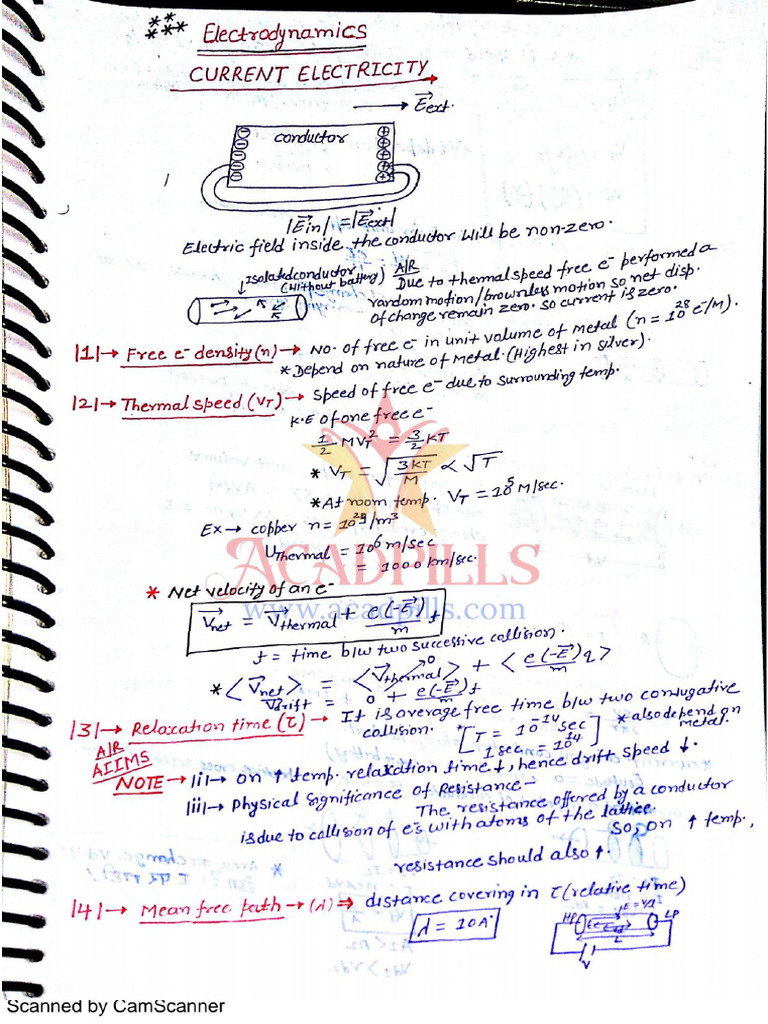 *****
Electrodynamics
CURRENT ELECTRICITY
→ E⃗ext.
conductor
|E⃗in| = |E⃗ext|
Electric field inside the conductor will be non-zero.
Isolated conductor (Without battery)
A/R Due to thermal speed free e⁻ performed a
random motion/brownless motion so net disp.
of change remain zero. so current is zero.
|1|→ Free e⁻ density (n) → No. of free e⁻ in unit volume of metal (n = 10²⁸ e⁻/M).
* Depend on nature of metal. (Highest in silver).
|2|→ Thermal speed (VT) → speed of free e⁻ due to surrounding temp.
K.E of one free e⁻
1/2 MVT² = 3/2 KT
* VT = √(3KT/M) ∝ √T
* At room temp. VT = 10⁵ M/sec.
Ex → copper n = 10²⁹/m³
UThermal = 10⁶ m/sec
= 1000 km/sec.
ACADPILLS
www.acadpills.com
* Net velocity of an e⁻
V⃗net = V⃗thermal + e(-E⃗)/m t
t = time b/w two successive collision.
* <V⃗net> = <V⃗thermal>⁰ + <e(-E⃗)/m τ>
Vdrift = 0 + e(-E⃗)/m t
|3|→ Relaxation time (τ) → It is average free time b/w two conjugative
collusion. *[T = 10⁻¹⁴ sec
1 sec = 10¹⁴]
* also depend on metal.
A/R
AIIMS
NOTE → |i|→ on ↑ temp. relaxation time ↓, hence drift speed ↓.
|ii|→ Physical significance of Resistance-
The resistance offered by a conductor
is due to collision of e⁻s with atoms of the lattice.
So, on ↑ temp,
resistance should also ↑.
|4|→ Mean free path → (λ) ⇒ distance covering in τ (relative time)
λ = 10A°
HP E = V/l LP
L
V
Scanned by CamScanner